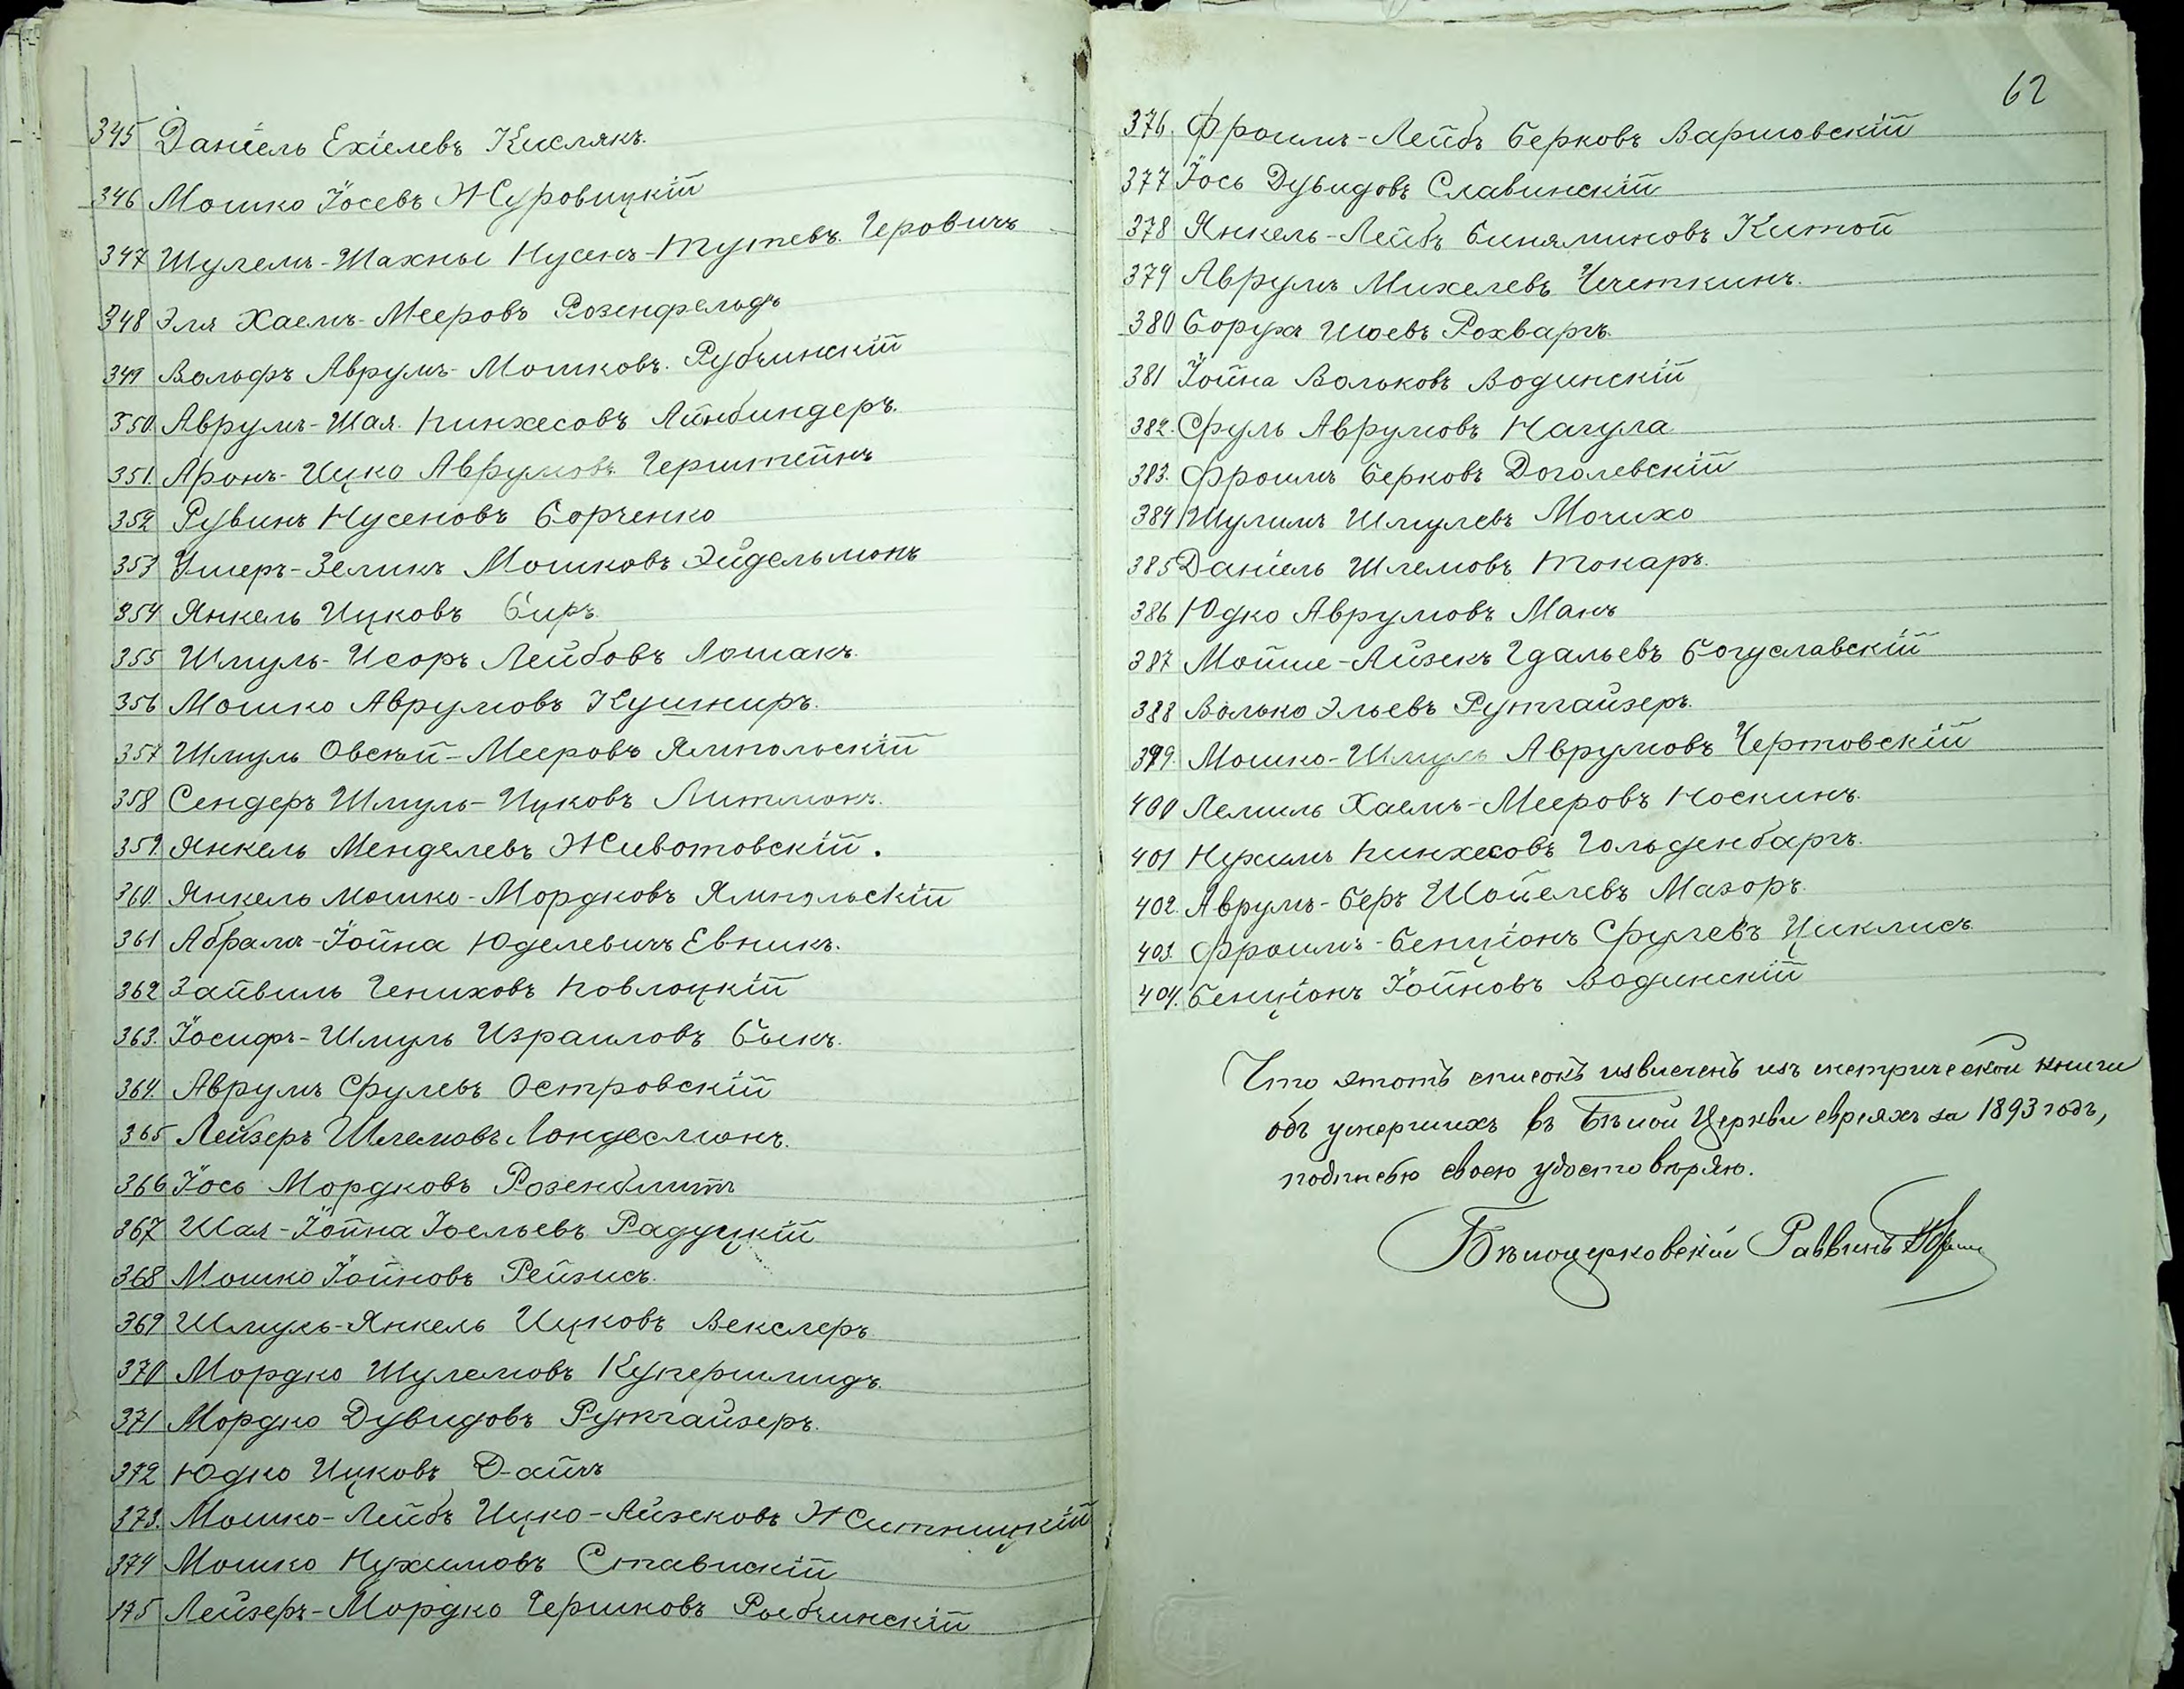 345 Даніель Ехіелевъ Кислякъ.
346 Мошко Іосевъ Журовицкій
347 Шулемъ-Шахны Нусенъ-Тутевъ. Геровичъ
348 Эля Хаемъ-Мееровъ Розенфельдъ
349 Вольфъ Аврумъ-Мошковъ. Рубчинскій
350. Аврумъ-Шая. Пинхесовъ Айнбиндеръ.
351. Аронъ-Ицко Аврумовъ. Герштейнъ
352 Рувинъ Нусеновъ Борченко
353 Ушеръ-Зеликъ Мошковъ Эйдельмонъ
354 Янкель Ицковъ Биръ.
355 Шмуль-Исоръ Лейбовъ Лошакъ.
356 Мошко Аврумовъ Кушниръ.
357 Шмуль Овсѣй-Мееровъ Ямпольскій
358 Сендеръ Шмуль-Ицковъ Литмонъ.
359. Янкель Менделевъ Животовскій.
360. Янкель Мошко-Мордковъ Ямпольскій
361 Абрамъ-Іойна Юделевичъ Евникъ.
362 Зайвиль Гениховъ Повлоцкій
363. Іосифъ-Шмуль Израиловъ Быкъ.
364. Аврумъ Срулевъ Островскій
365 Лейзеръ Шлемовъ Лондесмонъ.
366 Іось Мордковъ Розенблитъ
367 Шая-Іойна Іоельевъ Радуцкій
368 Мошко Іойновъ Рейзисъ.
369 Шмуль-Янкель Ицковъ Векслеръ
370 Мордко Шулемовъ Купершмидъ.
371 Мордко Дувидовъ Рутгайзеръ.
372 Юдко Ицковъ Дайчъ
373. Мошко-Лейбъ Ицко-Айзековъ Житницкій
374 Мошко Нухимовъ Ставискій
175 Лейзеръ-Мордко Гершковъ Рыбчинскій
62
376. Фроимъ-Лейбъ Берковъ Варшовскій
377 Іось Дувидовъ Славинскій
378 Янкель-Лейбъ Биняминовъ Китой
379 Аврумъ Михелевъ Чечеткинъ.
380 Борухъ Июевъ Рохваргъ.
381 Іойна Вольковъ Водинскій
382. Сруль Аврумовъ Нагула
383. Фроимъ Берковъ Доголевскій
384 Шулимъ Шмулевъ Мочихо
385 Даніель Шлемовъ Токаръ.
386 Юдко Аврумовъ Манъ
387 Мойше-Айзекъ Гдальевъ Богуславскій
388 Волько Эльевъ Рутгайзеръ.
399. Мошко-Шмуль Аврумовъ Чертовскій
400 Лемиль Хаемъ-Мееровъ Носкинъ.
401 Нухимъ Пинхесовъ Гольденбаргъ.
402. Аврумъ-Беръ Шойелевъ Мазоръ.
403. Фроимъ-Бенціонъ Срулевъ Циклисъ
404. Бенціонъ Іойновъ Водинскій
Что этотъ списокъ извлеченъ изъ метрической книги
объ умершихъ въ Бѣлой Церкви евреяхъ за 1893 годъ,
подписью своею удостовѣряю.
Бѣлоцерковскій Раввинъ